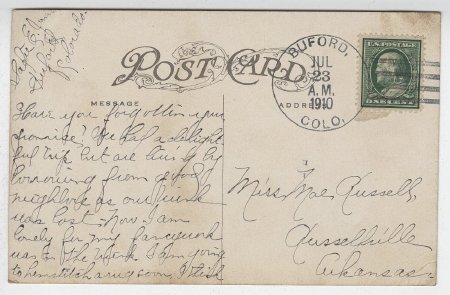 POST CARD
MESSAGE
ADDRESS
BUFORD,
JUL
23
A.M.
1910
COLO.
U.S. POSTAGE
ONE CENT
Have you forgotten your
promise? We had a delight
ful trip but are living by
borrowing from good
neighbors as our trunk
was lost. Now I am
lonely for my fancywork
was in the trunk. I am going
to hemstitch a rug soon, I think
Miss Mae Russell,
Russellville
Arkansas
Colorado